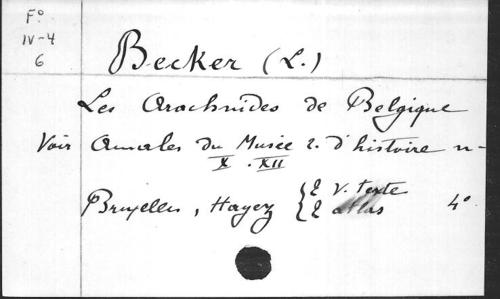 Fo
IV-4
6
Becker (L.)
Les Arachnides de Belgique
Voir Annales du Musée r. d'histoire n-
X . XII
Bruxelles, Hayez { 2 v. texte
{ 2 atlas 4°